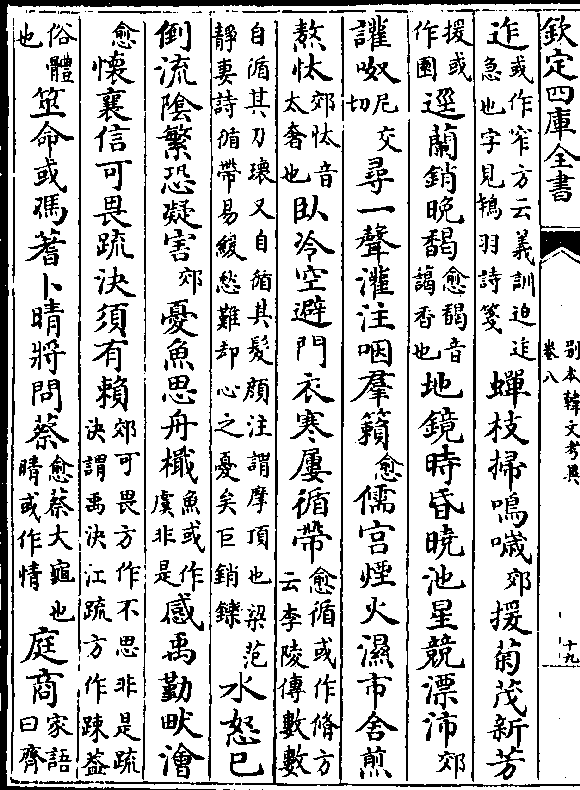 欽定四庫全書
別本韓文考異
卷八
十九
迮或作窄方云義訓迫迮急也字見鴇羽詩箋蟬枝掃鳴嘒郊援菊茂新芳
援或作園逕蘭銷晚馤愈馤音譪香也地鏡時昏曉池星競漂沛郊
讙呶尼交切尋一聲灌注咽羣籟愈儒宫煙火濕市舍煎
熬忲郊忲音太奢也臥冷空避門衣寒屢循帶愈循或作脩方云李陵傳數數
自循其刀環又自循其髮顔注謂摩頂也梁范靜妻詩循帶易緩愁難却心之憂矣叵銷鑠水怒已
倒流陰繁恐凝害郊憂魚思舟檝魚或作虞非是感禹勤畎澮
愈懷襄信可畏疏決須有賴郊可畏方作不思非是疏決謂禹決江疏方作踈蓋
俗體也筮命或馮蓍卜晴將問蔡愈蔡大龜也晴或作情庭商家語曰齊